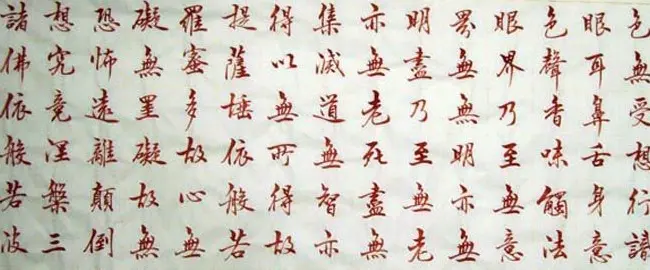 色無受想行識
眼耳鼻舌身意
色聲香味觸法
眼界乃至無意
界無無明亦無
明盡乃至無老
亦無老死盡無
集滅道無智亦
得以無所得故
提薩埵依般若
羅蜜多故心無
礙無罣礙故無
恐怖遠離顛倒
想究竟涅槃三
諸佛依般若波